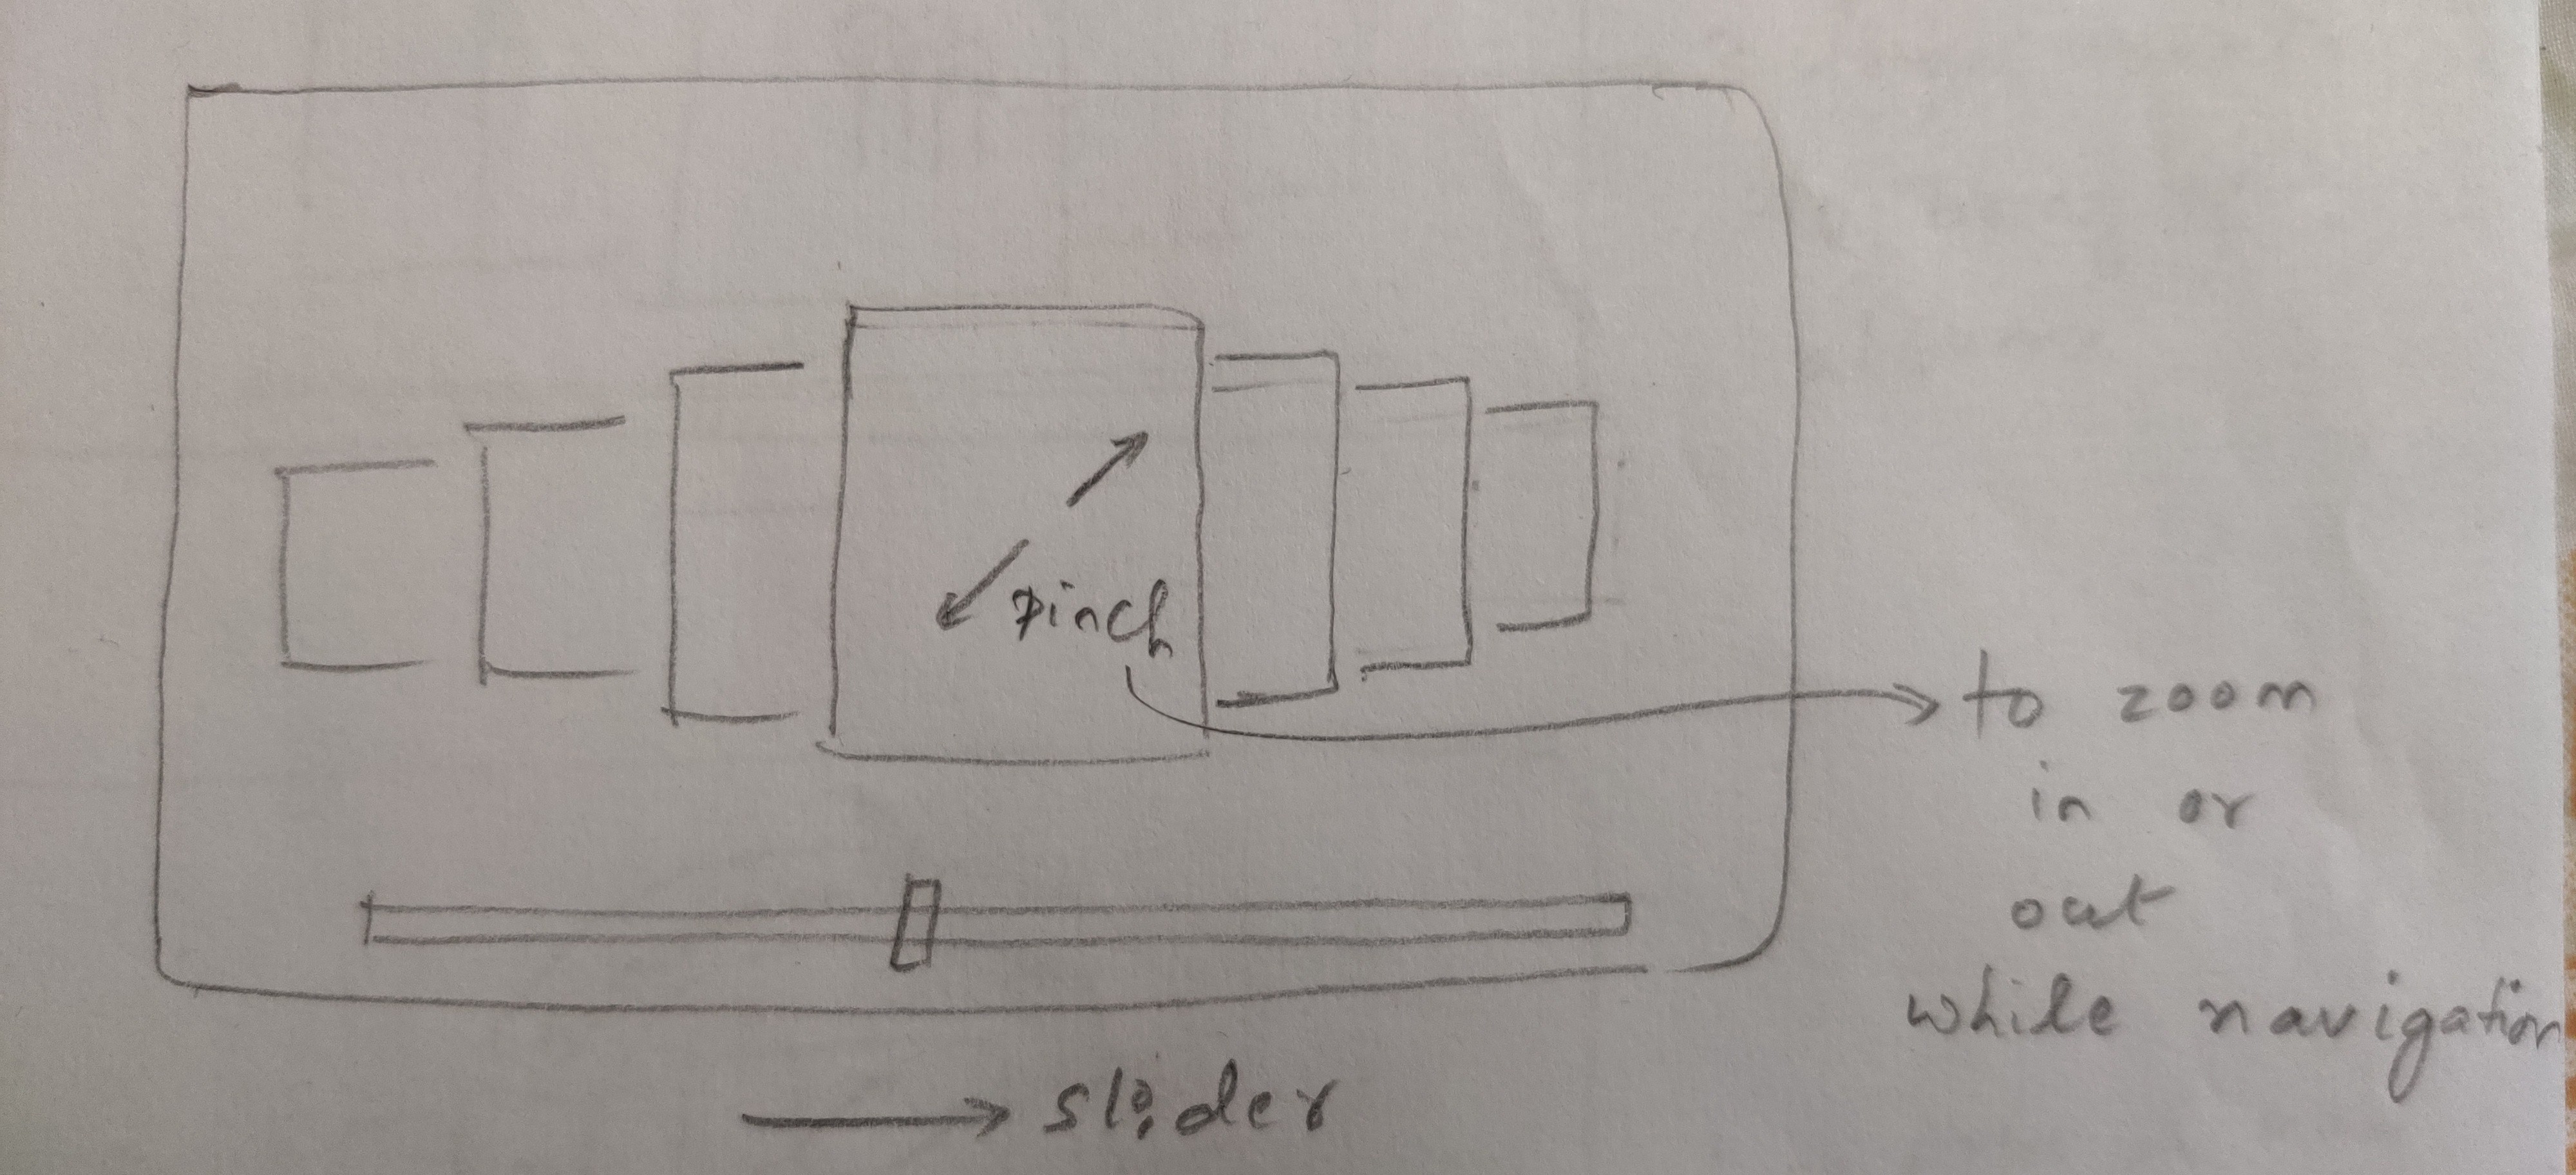 pinch
to zoom
in or
out
while navigation
slider